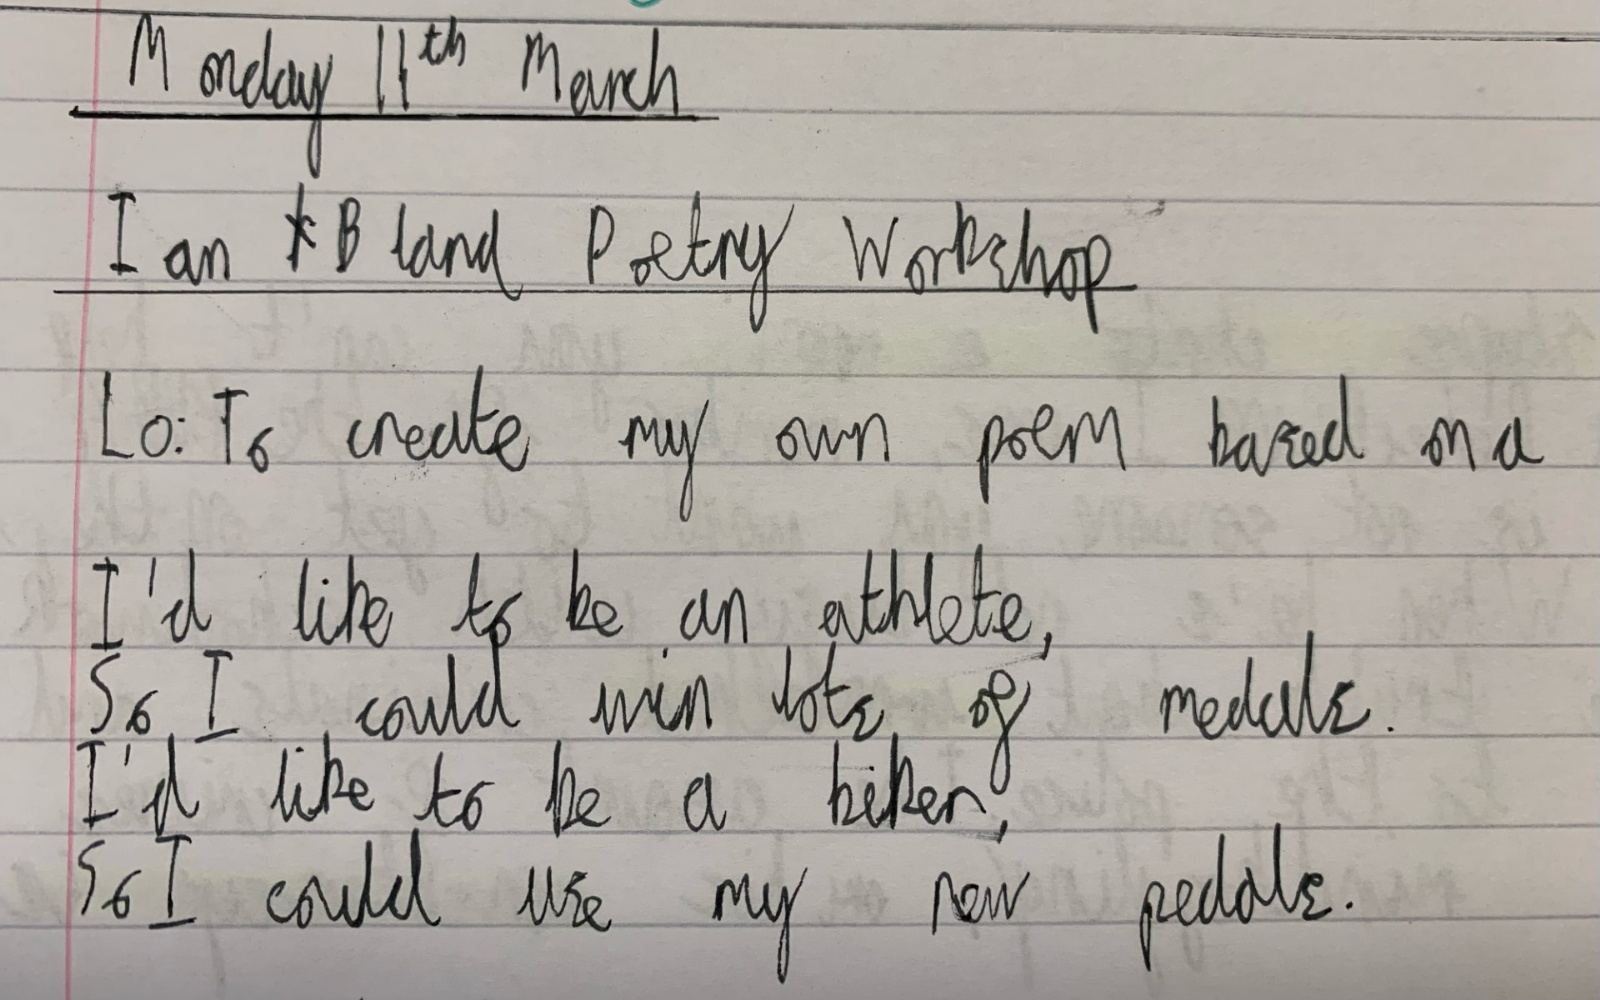 Monday 11th March
Ian Bland Poetry Workshop
Lo: To create my own poem based on a
I'd like to be an athlete,
So I could win lots of medals.
I'd like to be a biker,
So I could use my new pedals.